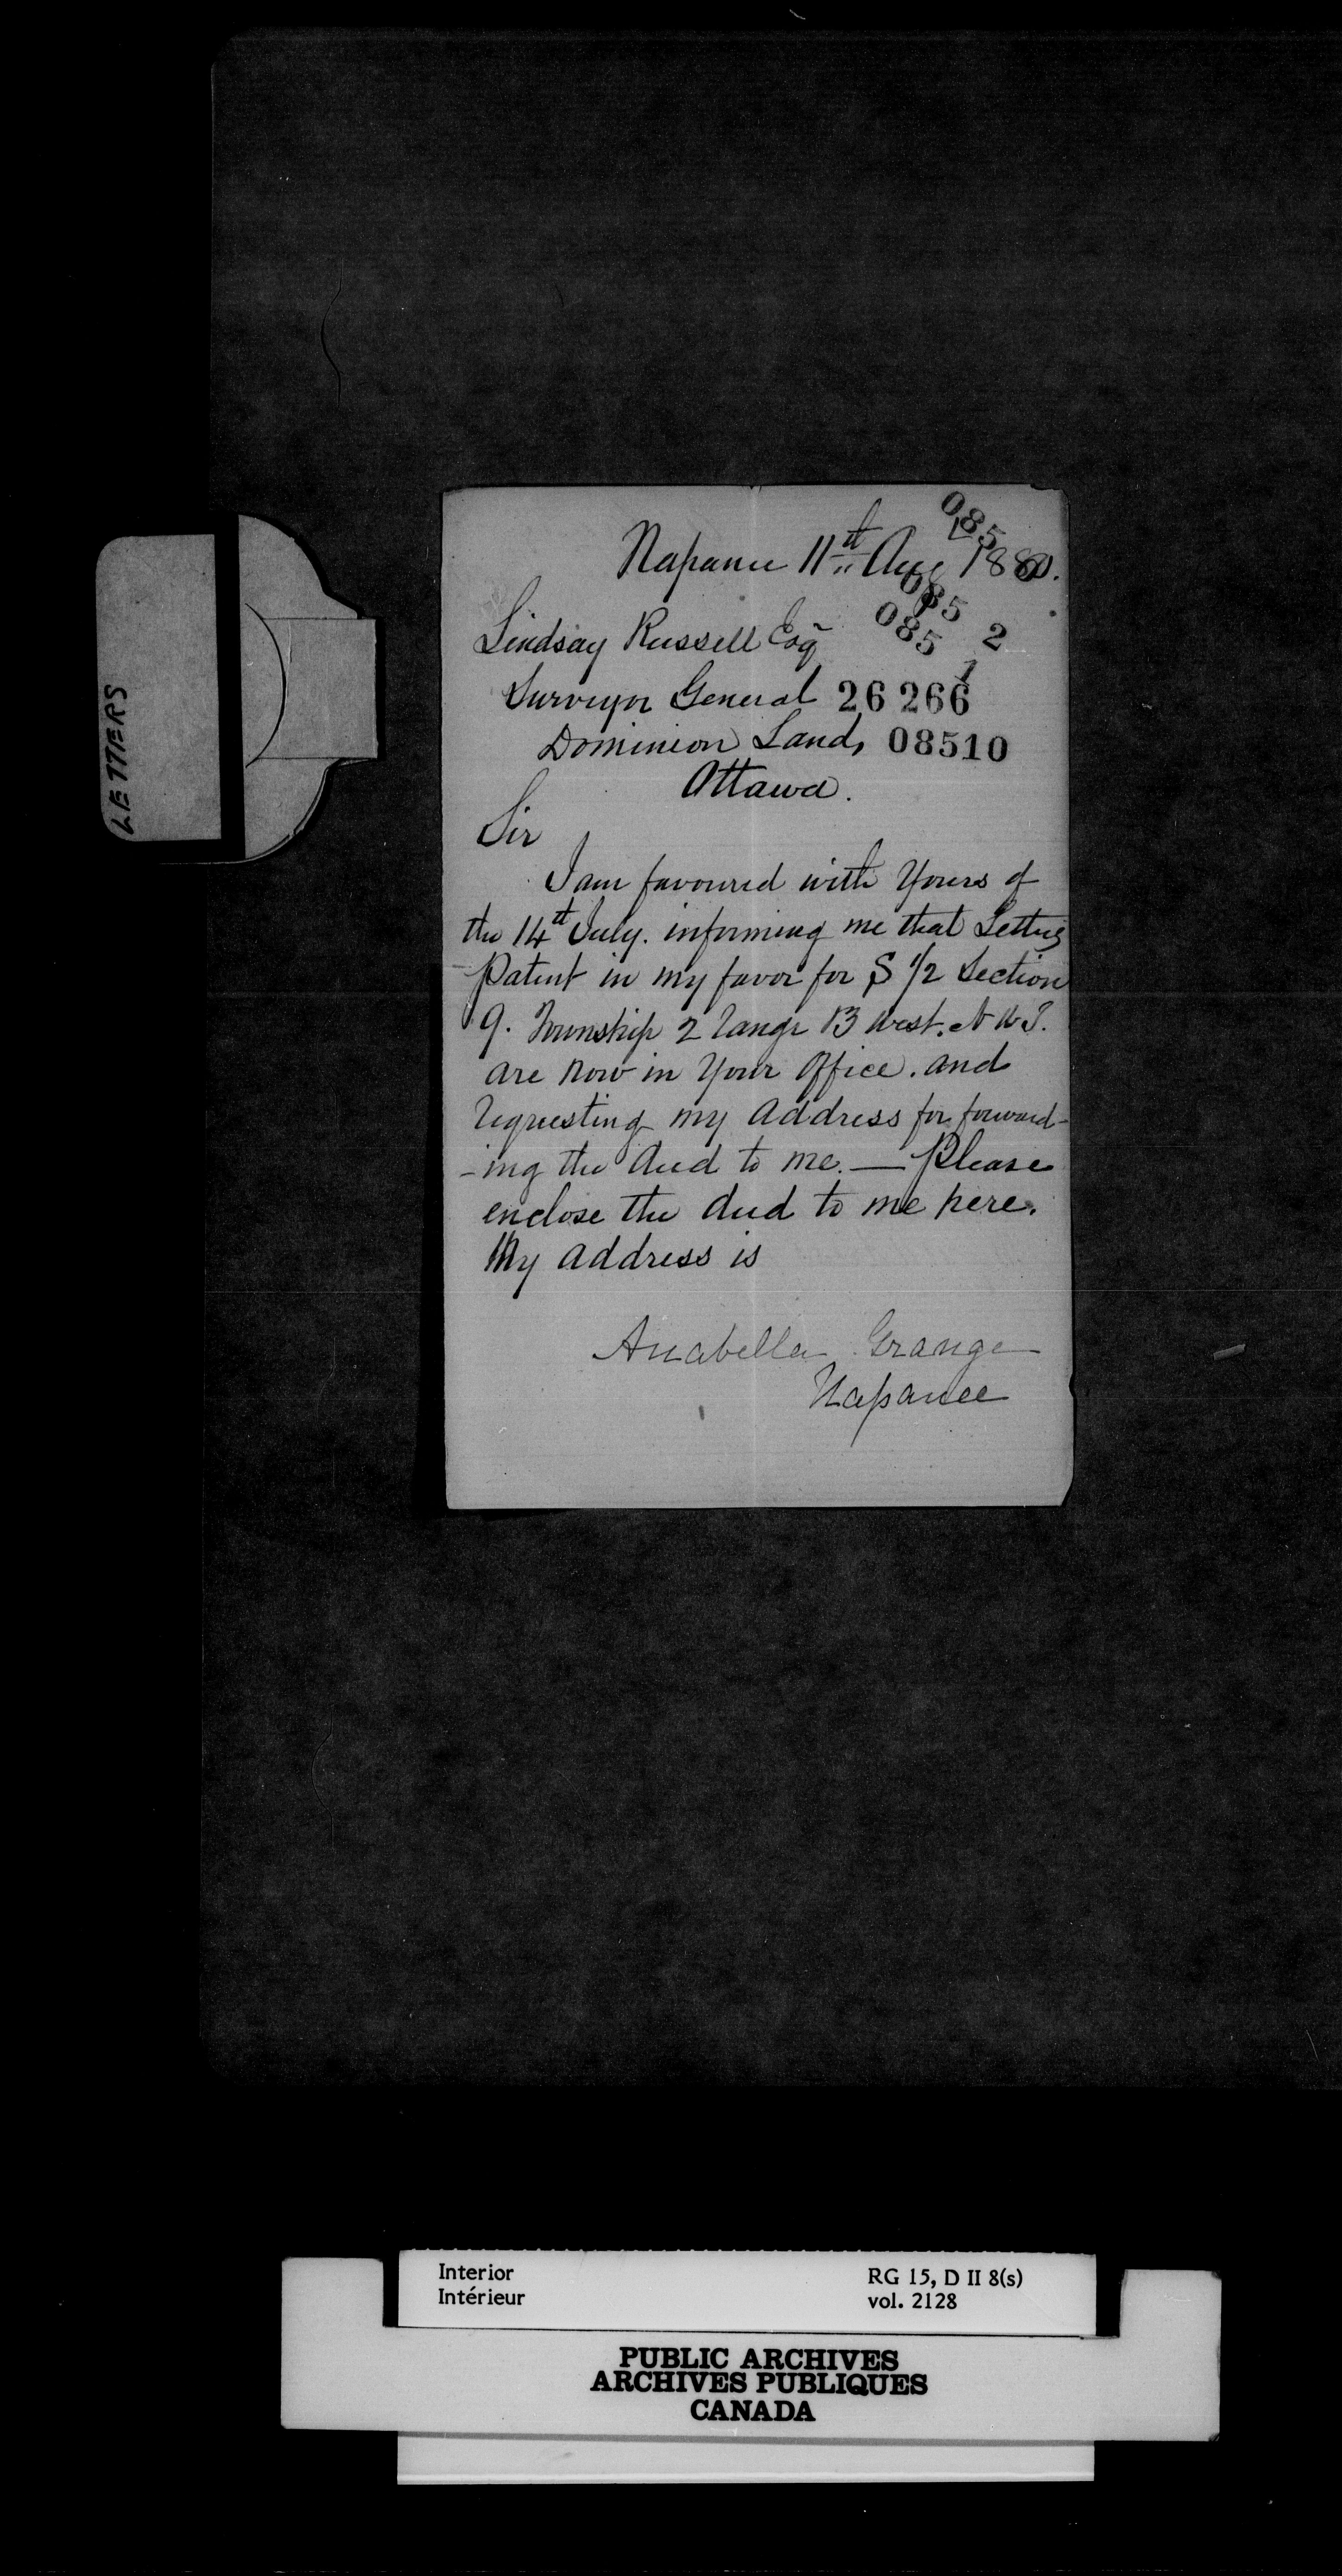 LETTERS
085
Napanee 11th Aug 1880.
085
Lindsay Russell Esq
085 2
Surveyor General 26 266
Dominion Lands 08510
Ottawa.
Sir
I am favoured with Yours of
the 14th July. informing me that Letters
Patent in my favor for S 1/2 Section
9. Township 2 Range 13 West. N W T.
are now in Your Office. and
requesting my address for forward-
-ing the deed to me. — Please
enclose the deed to me here.
My address is
Anabella Grange
Napanee
Interior RG 15, D II 8(s)
Intérieur vol. 2128
PUBLIC ARCHIVES
ARCHIVES PUBLIQUES
CANADA